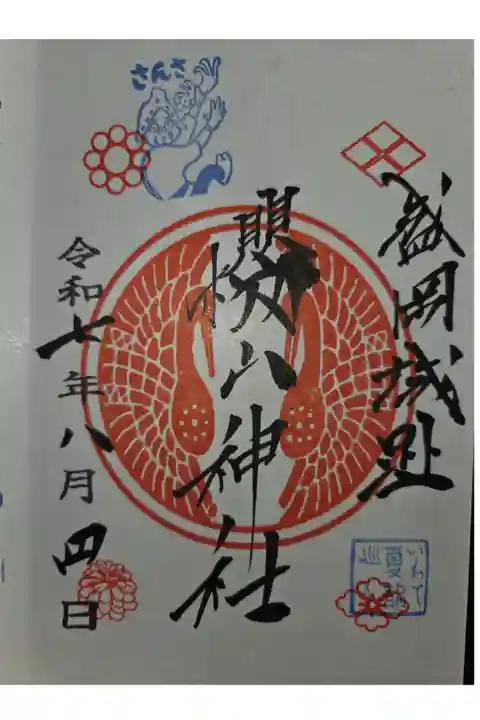 盛岡城趾
櫻山神社
令和七年八月四日
さんさ
いわて